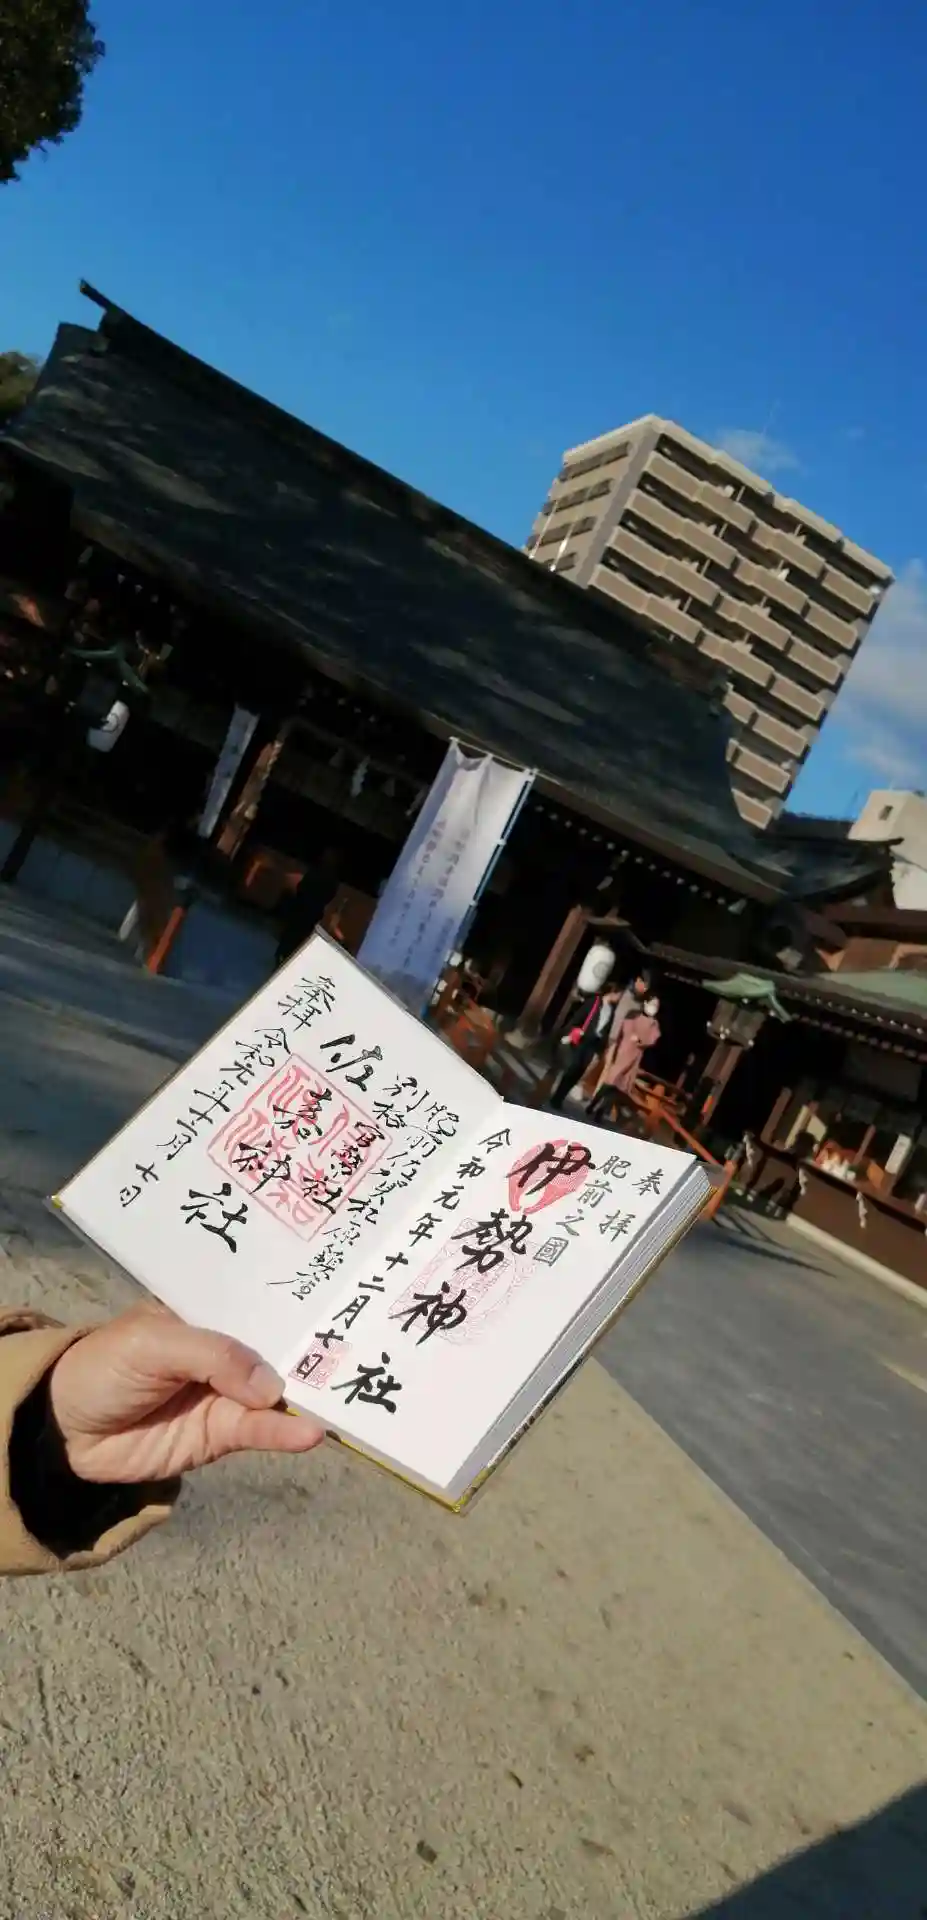 奉拝
肥前之國
伊勢神社
令和元年十二月七日
肥前佐賀松原鎮座
別格官幣社
佐嘉神社
奉拝
令和元年十二月七日